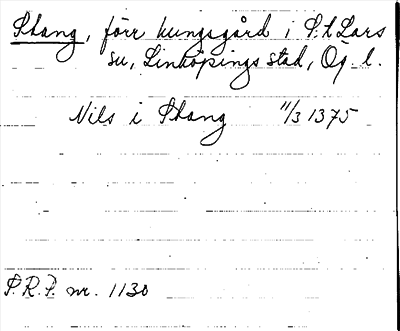 Stang, förr kungsgård i S:t Lars
sn, Linköpings stad, Ög. l.
Nils i Stang 11/3 1375
P.R.P. nr. 1130